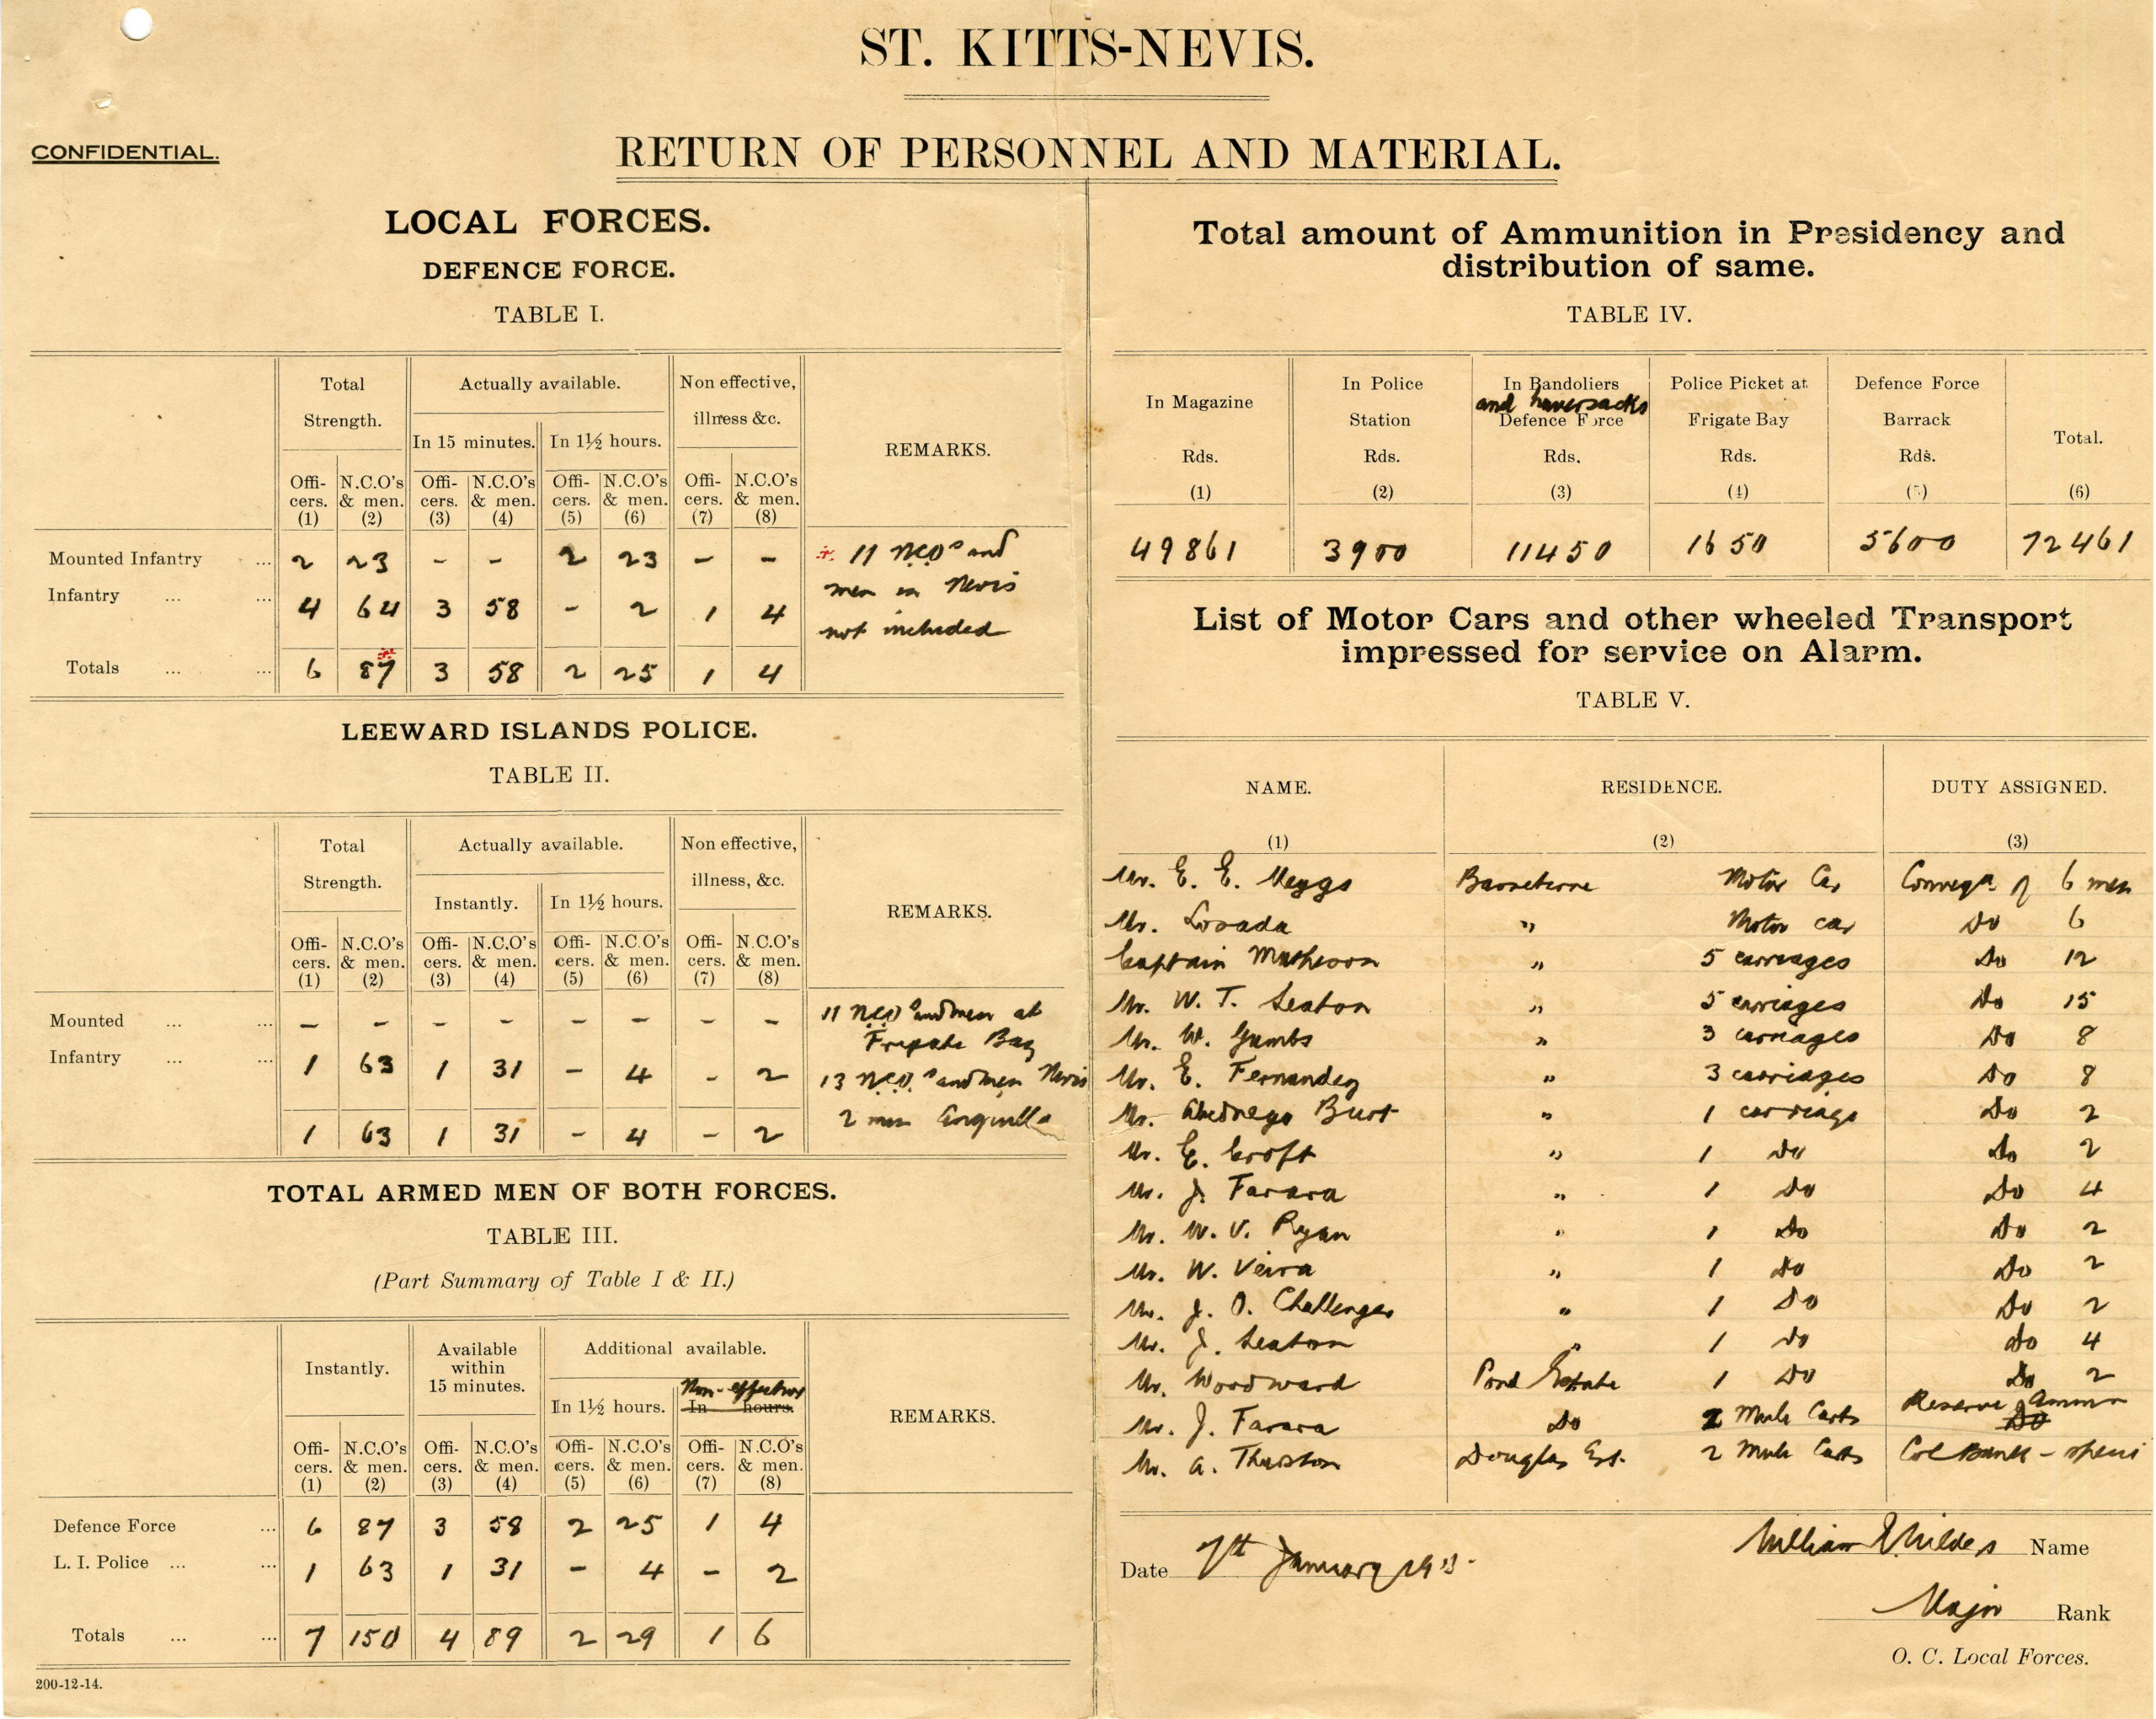 ST. KITTS-NEVIS.
CONFIDENTIAL.
RETURN OF PERSONNEL AND MATERIAL.
LOCAL FORCES.
DEFENCE FORCE.
TABLE I.
Total Strength. Actually available. Non effective, illness &c. REMARKS.
In 15 minutes. In 1½ hours.
Offi-cers. N.C.O's & men. Offi-cers. N.C.O's & men. Offi-cers. N.C.O's & men. Offi-cers. N.C.O's & men.
(1) (2) (3) (4) (5) (6) (7) (8)
Mounted Infantry ... 2 23 - - 2 23 - - 11 NCOs and
men in Nevis
Infantry ... ... 4 64 3 58 - 2 1 4
not included
Totals ... ... 6 87 3 58 2 25 1 4
LEEWARD ISLANDS POLICE.
TABLE II.
Total Strength. Actually available. Non effective, illness, &c. REMARKS.
Instantly. In 1½ hours.
Offi-cers. N.C.O's & men. Offi-cers. N.C.O's & men. Offi-cers. N.C.O's & men. Offi-cers. N.C.O's & men.
(1) (2) (3) (4) (5) (6) (7) (8)
Mounted ... ... - - - - - - - - 11 NCOs and men at
Frigate Bay
Infantry ... ... 1 63 1 31 - 4 - 2 13 N.C.O.s and men Nevis
2 men Anguilla
1 63 1 31 - 4 - 2
TOTAL ARMED MEN OF BOTH FORCES.
TABLE III.
(Part Summary of Table I & II.)
Instantly. Available within 15 minutes. Additional available. REMARKS.
In 1½ hours. Non-effective In hours.
Offi-cers. N.C.O's & men. Offi-cers. N.C.O's & men. Offi-cers. N.C.O's & men. Offi-cers. N.C.O's & men.
(1) (2) (3) (4) (5) (6) (7) (8)
Defence Force ... 6 87 3 58 2 25 1 4
L. I. Police ... ... 1 63 1 31 - 4 - 2
Totals ... ... 7 150 4 89 2 29 1 6
200-12-14.
Total amount of Ammunition in Presidency and
distribution of same.
TABLE IV.
In Magazine Rds. In Police Station Rds. In Bandoliers and haversacks Defence Force Rds. Police Picket at Frigate Bay Rds. Defence Force Barrack Rds. Total.
(1) (2) (3) (4) (5) (6)
49861 3900 11450 1650 5600 72461
List of Motor Cars and other wheeled Transport
impressed for service on Alarm.
TABLE V.
NAME. RESIDENCE. DUTY ASSIGNED.
(1) (2) (3)
Mr. E. E. Meggs Basseterre Motor Car of 6 men
Mr. Losada " Motor car Do 6
Captain Matheson " 5 carriages Do 12
Mr. W. T. Seaton " 5 carriages Do 15
Mr. W. Gumbs " 3 carriages Do 8
Mr. E. Fernandez " 3 carriages Do 8
Mr. Abednego Burt " 1 carriage Do 2
Mr. E. Croft " 1 Do Do 2
Mr. J. Farara " 1 Do Do 4
Mr. W. V. Ryan " 1 Do Do 2
Mr. W. Veira " 1 Do Do 2
Mr. J. O. Challenger " 1 Do Do 2
Mr. J. Seaton " 1 Do Do 4
Mr. Woodward Pond Estate 1 Do Do 2
Mr. J. Farara Do 2 Mule Carts Reserve Ammn Do
Mr. A. Thurston Douglas Est. 2 Mule Carts
Date 7th January 1915
William Wilders Name
Major Rank
O. C. Local Forces.